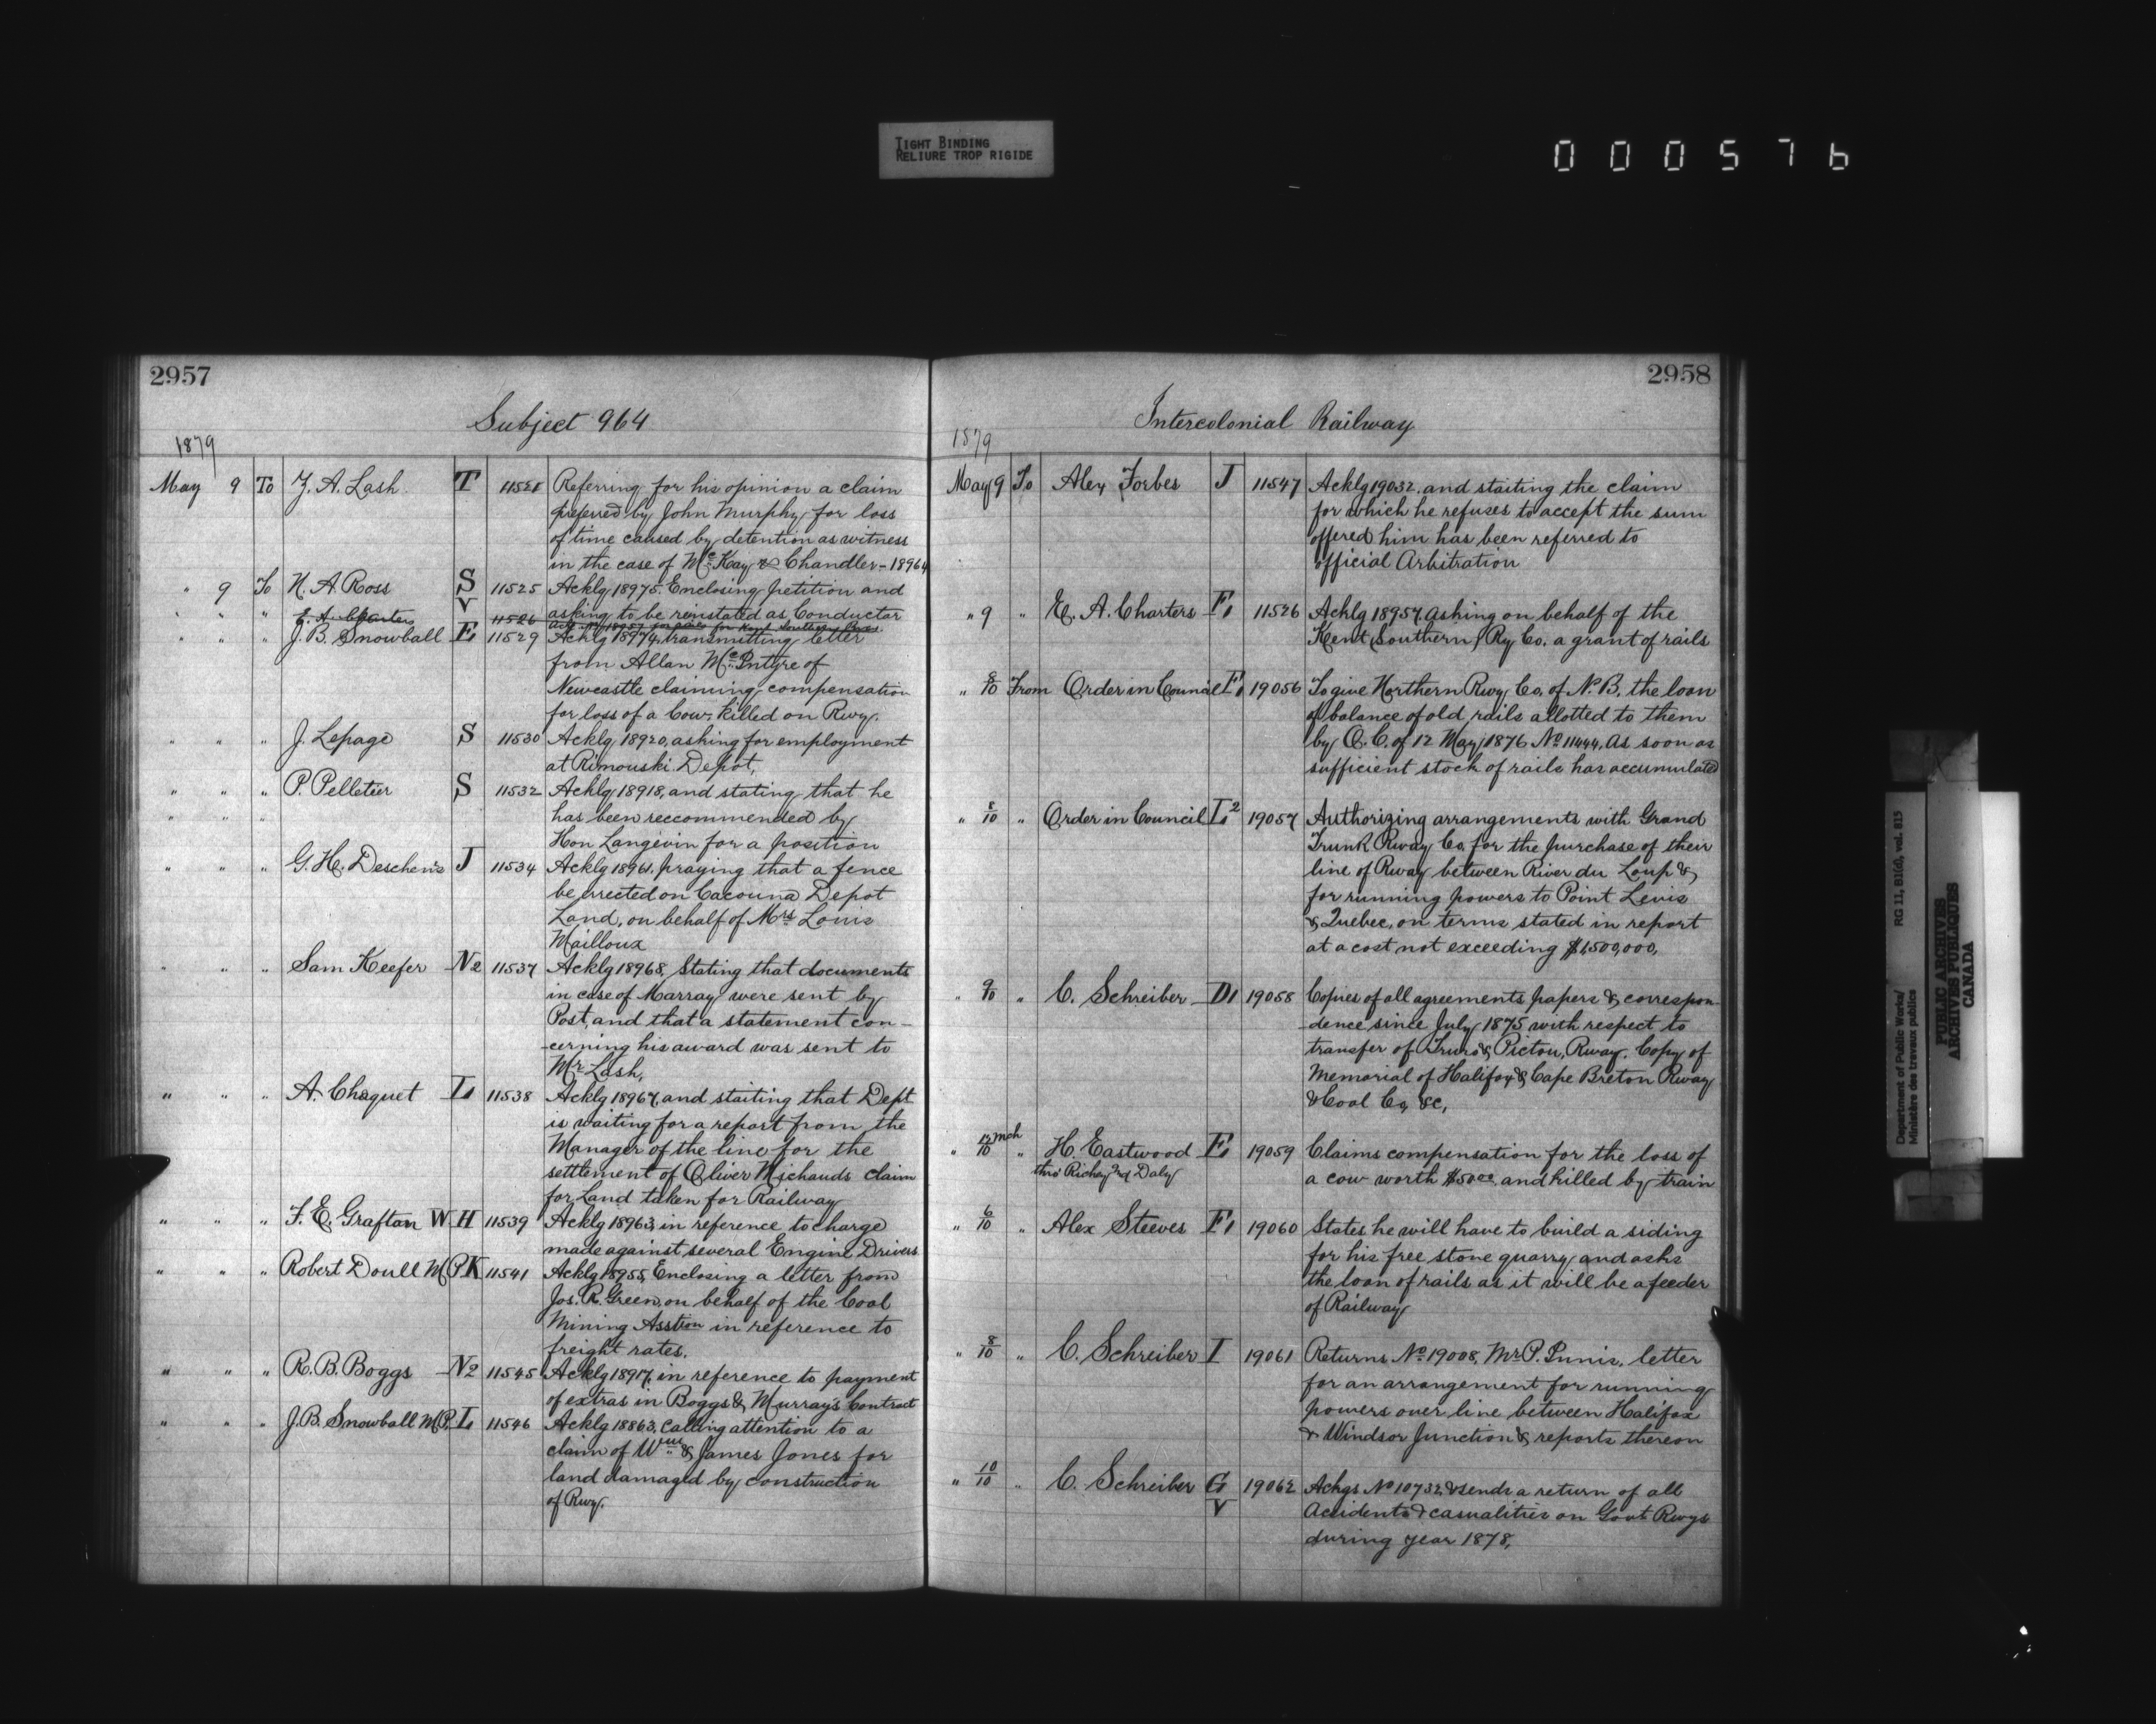 TIGHT BINDING
RELIURE TROP RIGIDE
000576
2957
Subject 964
1879
May 9 To Z. A. Lash T 11521 Referring for his opinion a claim
preferred by John Murphy for loss
of time caused by detention as witness
in the case of McKay & Chandler - 18964
" 9 To N. A. Ross S 11525 Acklg 18975. Enclosing petition and
asking to be reinstated as Conductor
" " " E. A. Charters V 11526
" " " J. B. Snowball E1 11529 Acklg 18974, transmitting letter
from Allan McIntyre of
Newcastle claiming compensation
for loss of a Cow killed on Rwy.
" " " J. Lepage S 11530 Acklg 18920, asking for employment
at Rimouski Depot,
" " " P. Pelletier S 11532 Acklg 18918, and stating that he
" " " has been reccommended by
Hon Langevin for a position
" " " G. H. Deschenes J 11534 Acklg 18961. praying that a fence
be errected on Cacouna Depot
Land, on behalf of Mrs Louis
Mailloux
" " " Sam Keefer N2 11537 Acklg 18968, Stating that documents
in case of Marray were sent by
Post, and that a statement con-
-cerning his award was sent to
Mr Lash,
" " " A. Choquet L1 11538 Acklg 18967, and stating that Dept
is waiting for a report from the
Manager of the line for the
settlement of Oliver Michauds claim
for Land taken for Railway
" " " F. E. Graftan W H 11539 Acklg 18963, in reference to charge
made against several Engine Drivers
" " " Robert Doull M.P. K 11541 Acklg 18955, Enclosing a letter from
Jos. R. Green, on behalf of the Coal
Mining Asstion in reference to
freight rates.
" " " R. B. Boggs N2 11545 Acklg 18917, in reference to payment
of extras in Boggs & Murray's Contract
" " " J. B. Snowball M.P. L1 11546 Acklg 18863, Calling attention to a
claim of Wm & James Jones for
land damaged by construction
of Rwy.
2958
Intercolonial Railway
1879
May 9 To Alex Forbes J 11547 Acklg 19032. and stating the claim
for which he refuses to accept the sum
offered him has been referred to
official Arbitration
" 9 " E. A. Charters F1 11526 Acklg 18957. asking on behalf of the
Kent (Southern) Ry Co. a grant of rails
" 8/10 From Order in Council F1 19056 To give Northern Rwy Co. of N.B. the loan
of balance of old rails allotted to them
by O. C. of 12 May 1876 No 11444, As soon as
sufficient stock of rails has accumulated
" 8/10 " Order in Council L2 19057 Authorizing arrangements with Grand
Trunk Rway Co, for the purchase of their
line of Rway between River du Loup &
for running powers to Point Levis
& Quebec, on terms stated in report
at a cost not exceeding $1,500,000,
" 9/10 " C. Schreiber D1 19058 Copies of all agreements papers & correspon-
-dence since July 1875 with respect to
transfer of Truro & Pictou, Rway. Copy of
Memorial of Halifax & Cape Breton Rway
& Coal Co, &c,
" 12 mch/10 " H. Eastwood E1 19059 Claims compensation for the loss of
thro' Richey and Daly a cow worth $50.00 and killed by train
" 6/10 " Alex Steeves F1 19060 States he will have to build a siding
for his free stone quarry and asks
the loan of rails as it will be a feeder
of Railway
" 8/10 " C. Schreiber I 19061 Returns No 19008, Mr P. Innis, letter
for an arrangement for running
powers over line between Halifax
& Windsor Junction & reports thereon
" 10/10 " C. Schreiber G V 19062 Ackgs No 10732 & sends a return of all
Accidents & casualities on Govt Rwys
during year 1878,
Department of Public Works/ RG 11, B1(d), vol. 815
Ministère des travaux publics
PUBLIC ARCHIVES
ARCHIVES PUBLIQUES
CANADA